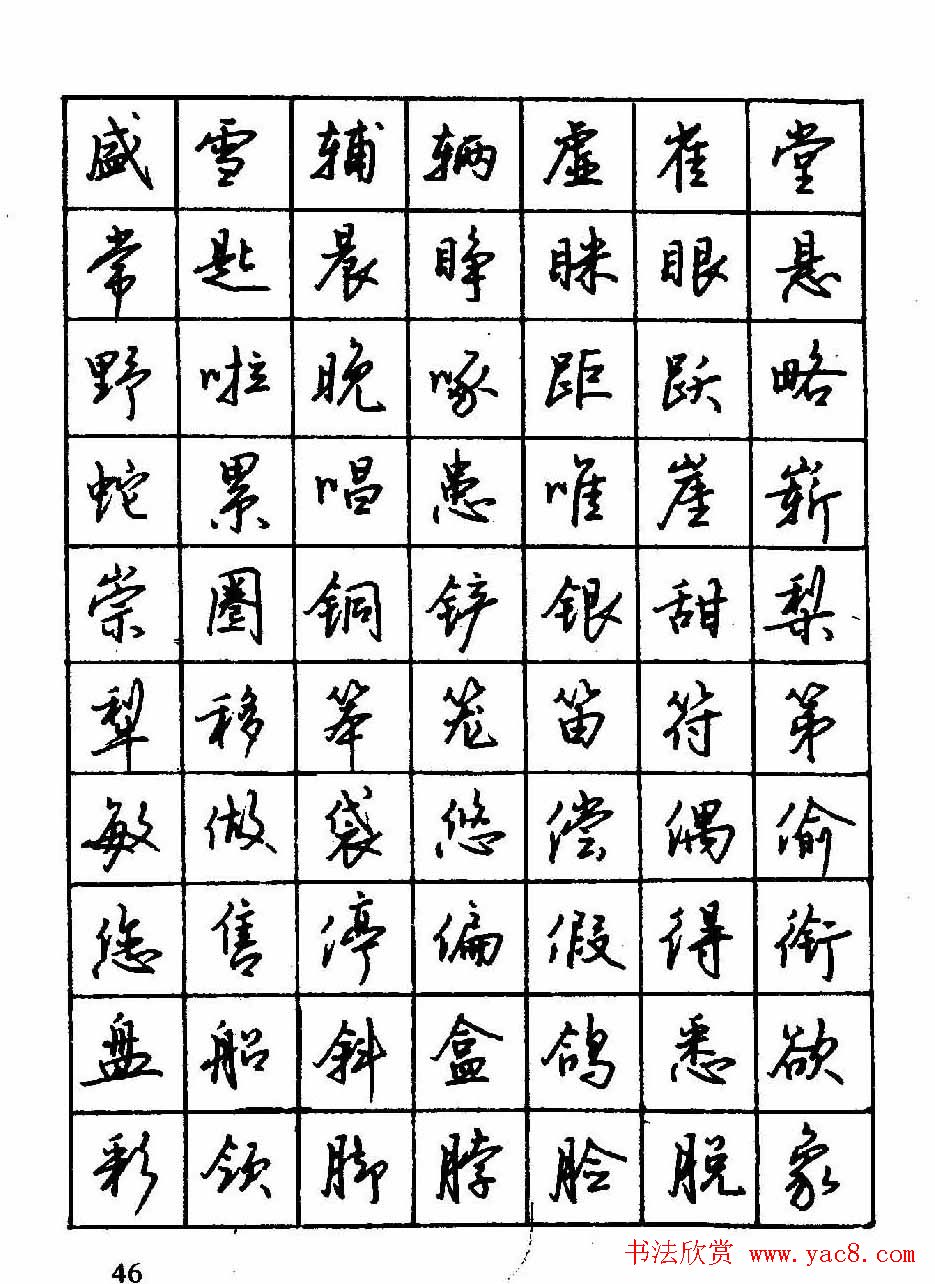 盛雪辅辆虚雀堂
常匙晨睁眯眼悬
野啦晚啄距跃略
蛇累唱患唯崖崭
崇圈铜铲银甜梨
犁移笨笼笛符第
敏做袋悠偿偶偷
您售停偏假得衔
盘船斜盒鸽悉欲
彩领脚脖脸脱象
书法欣赏 www.yac8.com
46